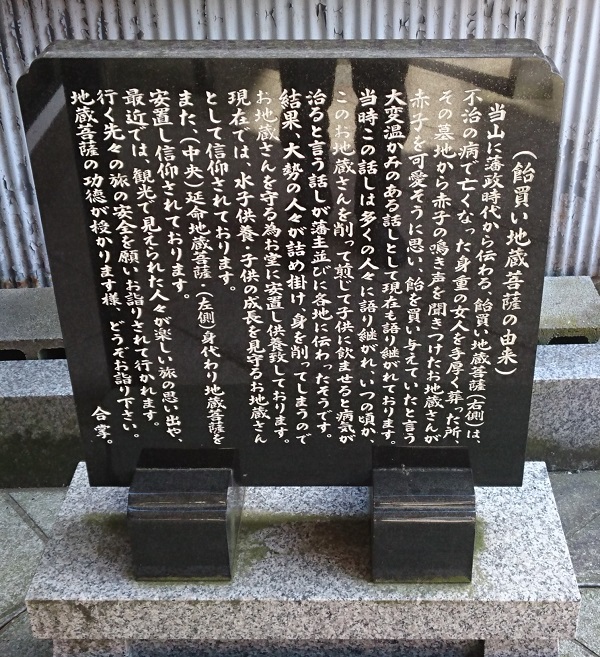 （飴買い地蔵菩薩の由来）
当山に藩政時代から伝わる、飴買い地蔵菩薩（右側）は、
不治の病で亡くなった身重の女人を手厚く葬った所、
その墓地から赤子の鳴き声を聞きつけたお地蔵さんが
赤子を可愛そうに思い、飴を買い与えていたと言う
大変温かみのある話しとして現在も語り継がれております。
当時この話しは多くの人々に語り継がれ、いつの頃か、
このお地蔵さんを削って煎じて子供に飲ませると病気が
治ると言う話しが藩主並びに各地に伝わったそうです。
結果、大勢の人々が詰め掛け、身を削ってしまうので
お地蔵さんを守る為お堂に安置し供養致しております。
現在では、水子供養・子供の成長を見守るお地蔵さん
として信仰されております。
また、（中央）延命地蔵菩薩・（左側）身代わり地蔵菩薩を
安置し信仰されております。
最近では、観光で見えられた人々が楽しい旅の思い出や、
行く先々の旅の安全を願いお詣りされて行かれます。
地蔵菩薩の功徳が授かります様、どうぞお詣り下さい。
合掌。